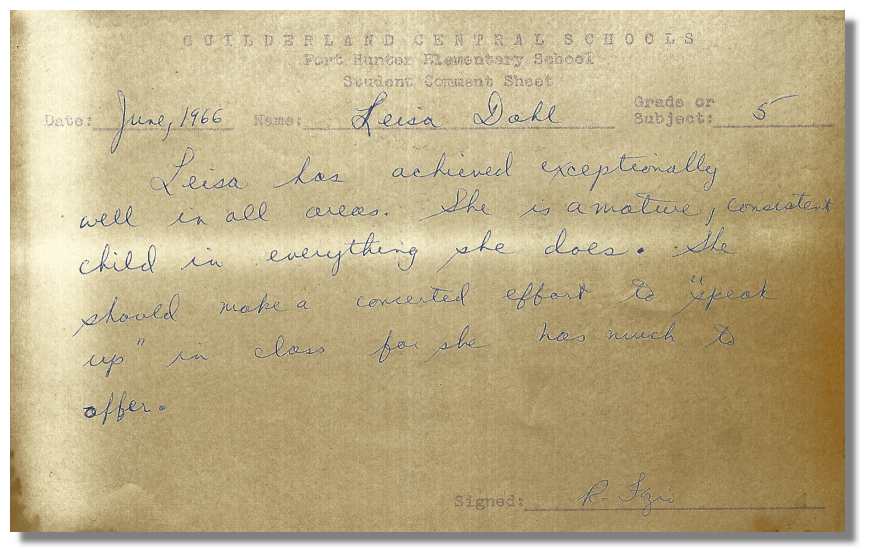 GUILDERLAND CENTRAL SCHOOLS
Fort Hunter Elementary School
Student Comment Sheet
Date: June, 1966 Name: Leisa Dahl Grade or Subject: 5
Leisa has achieved exceptionally
well in all areas. She is a mature, consistent
child in everything she does. She
should make a concerted effort to "speak
up" in class for she has much to
offer.
Signed: R.